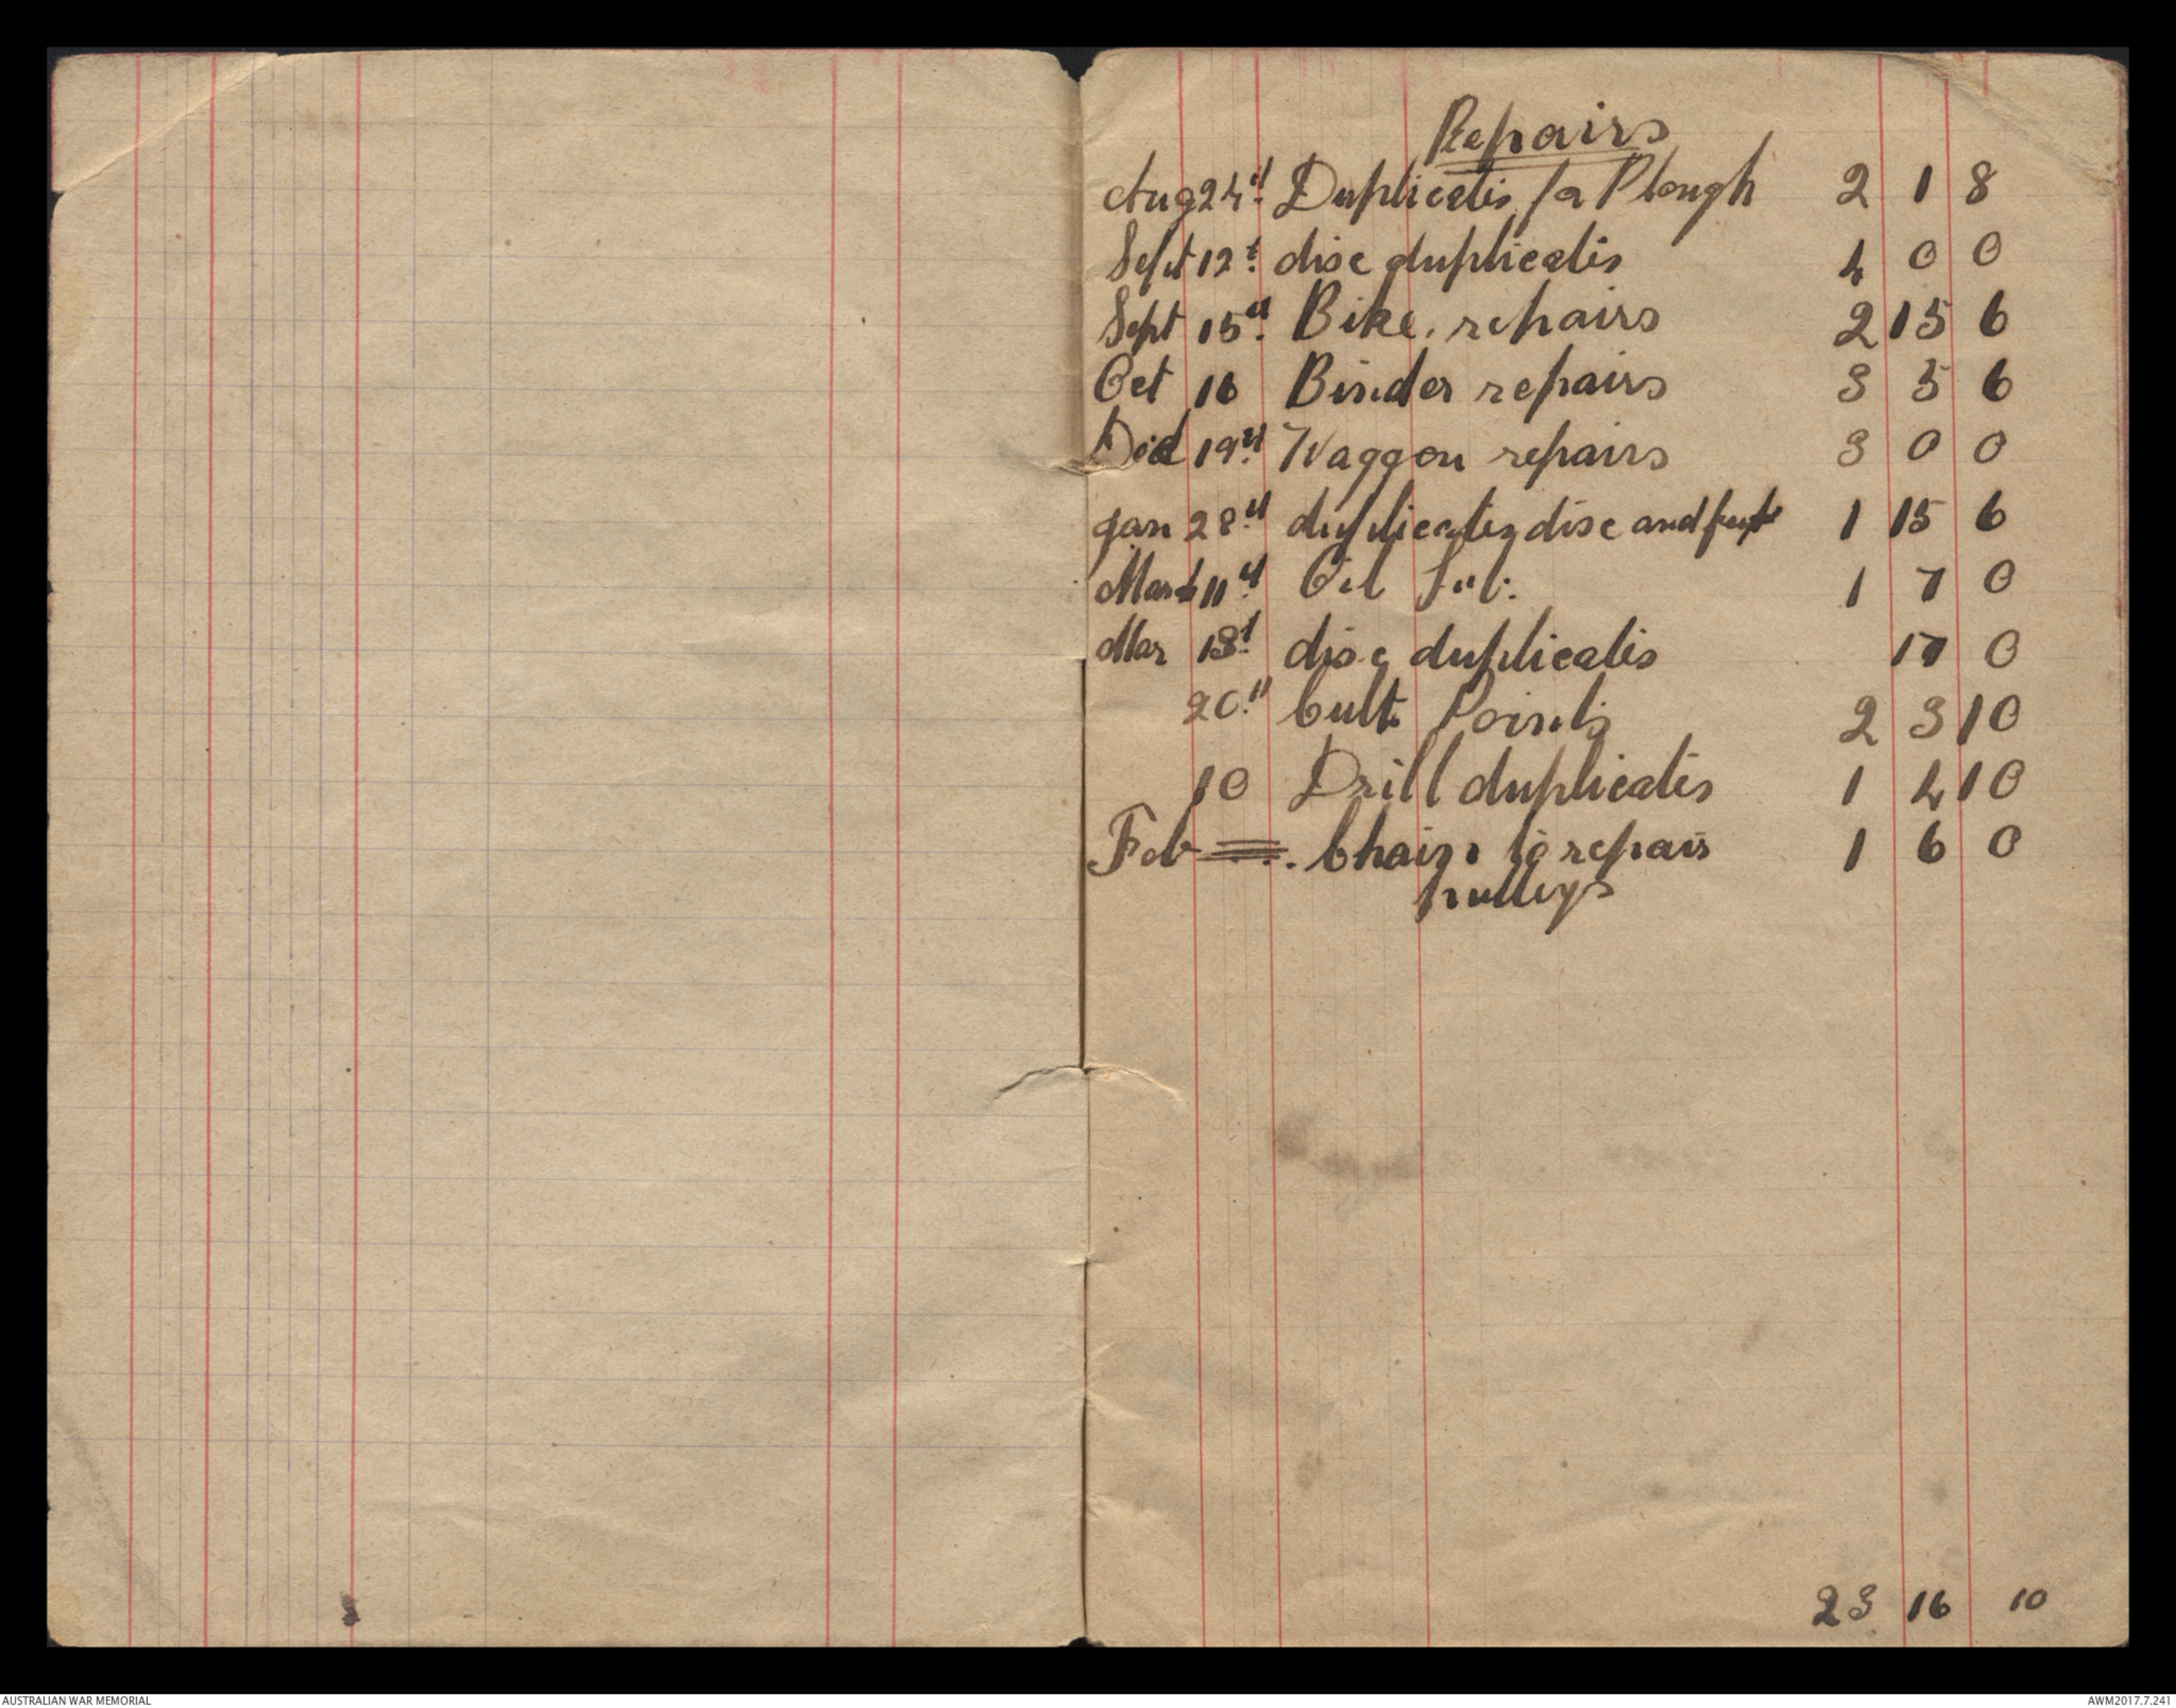 Repairs
Aug 24th Duplicates fo Plough 2 1 8
Sept 12t disc duplicates 4 0 0
Sept 15th Bike repairs 2 15 6
Oct 16 Binder repairs 3 5 6
19th Waggon repairs 3 0 0
Jan 28th duplicates disc and 1 15 6
March 11th Oil 1 7 0
Mar 13t disc duplicates 17 0
20th Cult Points 2 3 10
10 Drill duplicates 1 4 10
Feb Chain to repair 1 6 0
pulleys
23 16 10
AUSTRALIAN WAR MEMORIAL
AWM2017.7.241